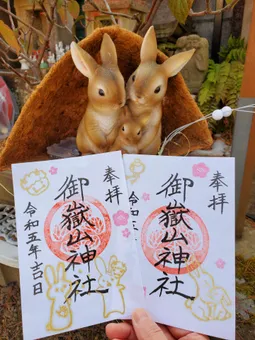 奉拝
御嶽山神社
令和五年吉日
奉拝
御嶽山神社
令